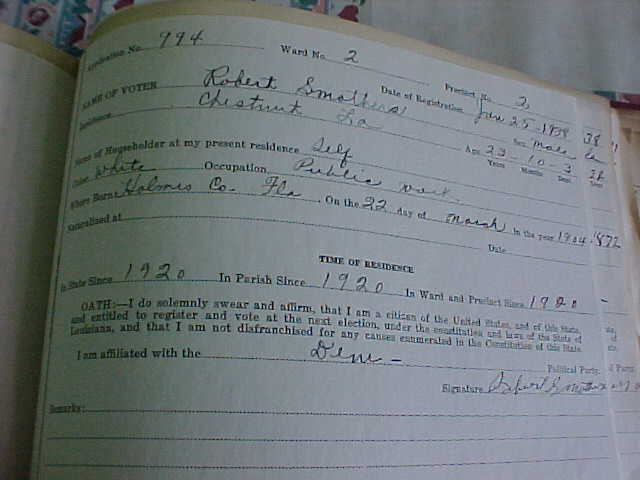 Application No. 994 Ward No. 2 Precinct No. 2
NAME OF VOTER Robert Smothers Date of Registration Jan 25-1938
Residence Chestnut La Sex Male
Name of Householder at my present residence Self Age 33-10-3
Years Months Days
Color White Occupation Public Work.
Where Born Holmes Co. Fla. On the 22 day of March In the year 1904
Naturalized at Date
TIME OF RESIDENCE
In State Since 1920 In Parish Since 1920 In Ward and Precinct Since 1920
OATH:—I do solemnly swear and affirm, that I am a citizen of the United States, and of this State,
and entitled to register and vote at the next election, under the constitution and laws of the State of
Louisiana, and that I am not disfranchised for any causes enumerated in the Constitution of this State.
I am affiliated with the Dem - Political Party.
Signature Robert Smothers
Remarks: